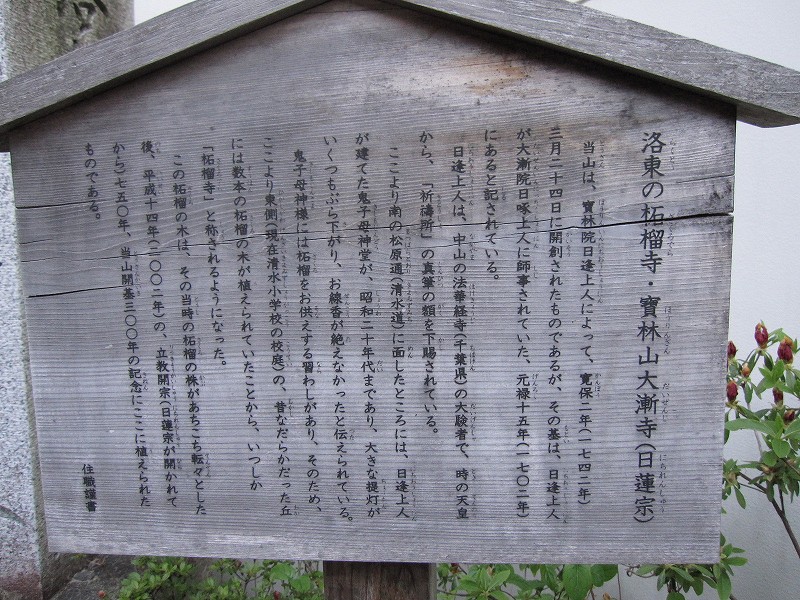 洛東の柘榴寺・寳林山大漸寺(日蓮宗)
当山は、寳林院日逢上人によって、寛保二年(一七四二年)
三月二十四日に開創されたものであるが、その基は、日逢上人
が大漸院日啄上人に師事されていた、元禄十五年(一七〇二年)
にあると記されている。
日逢上人は、中山の法華経寺(千葉県)の大験者で、時の天皇
から、「祈禱所」の真筆の額を下賜されている。
ここより南の松原通(清水道)に面したところには、日逢上人
が建てた鬼子母神堂が、昭和二十年代まであり、大きな提灯が
いくつもぶら下がり、お線香が絶えなかったと伝えられている。
鬼子母神様には柘榴をお供えする習わしがあり、そのため、
ここより東側(現在清水小学校の校庭)の、昔なだらかだった丘
には数本の柘榴の木が植えられていたことから、いつしか
「柘榴寺」と称されるようになった。
この柘榴の木は、その当時の柘榴の株があちこち転々とした
後、平成十四年(二〇〇二年)の、立教開宗(日蓮宗が開かれて
から)七五〇年、当山開基三〇〇年の記念にここに植えられた
ものである。
住職謹書